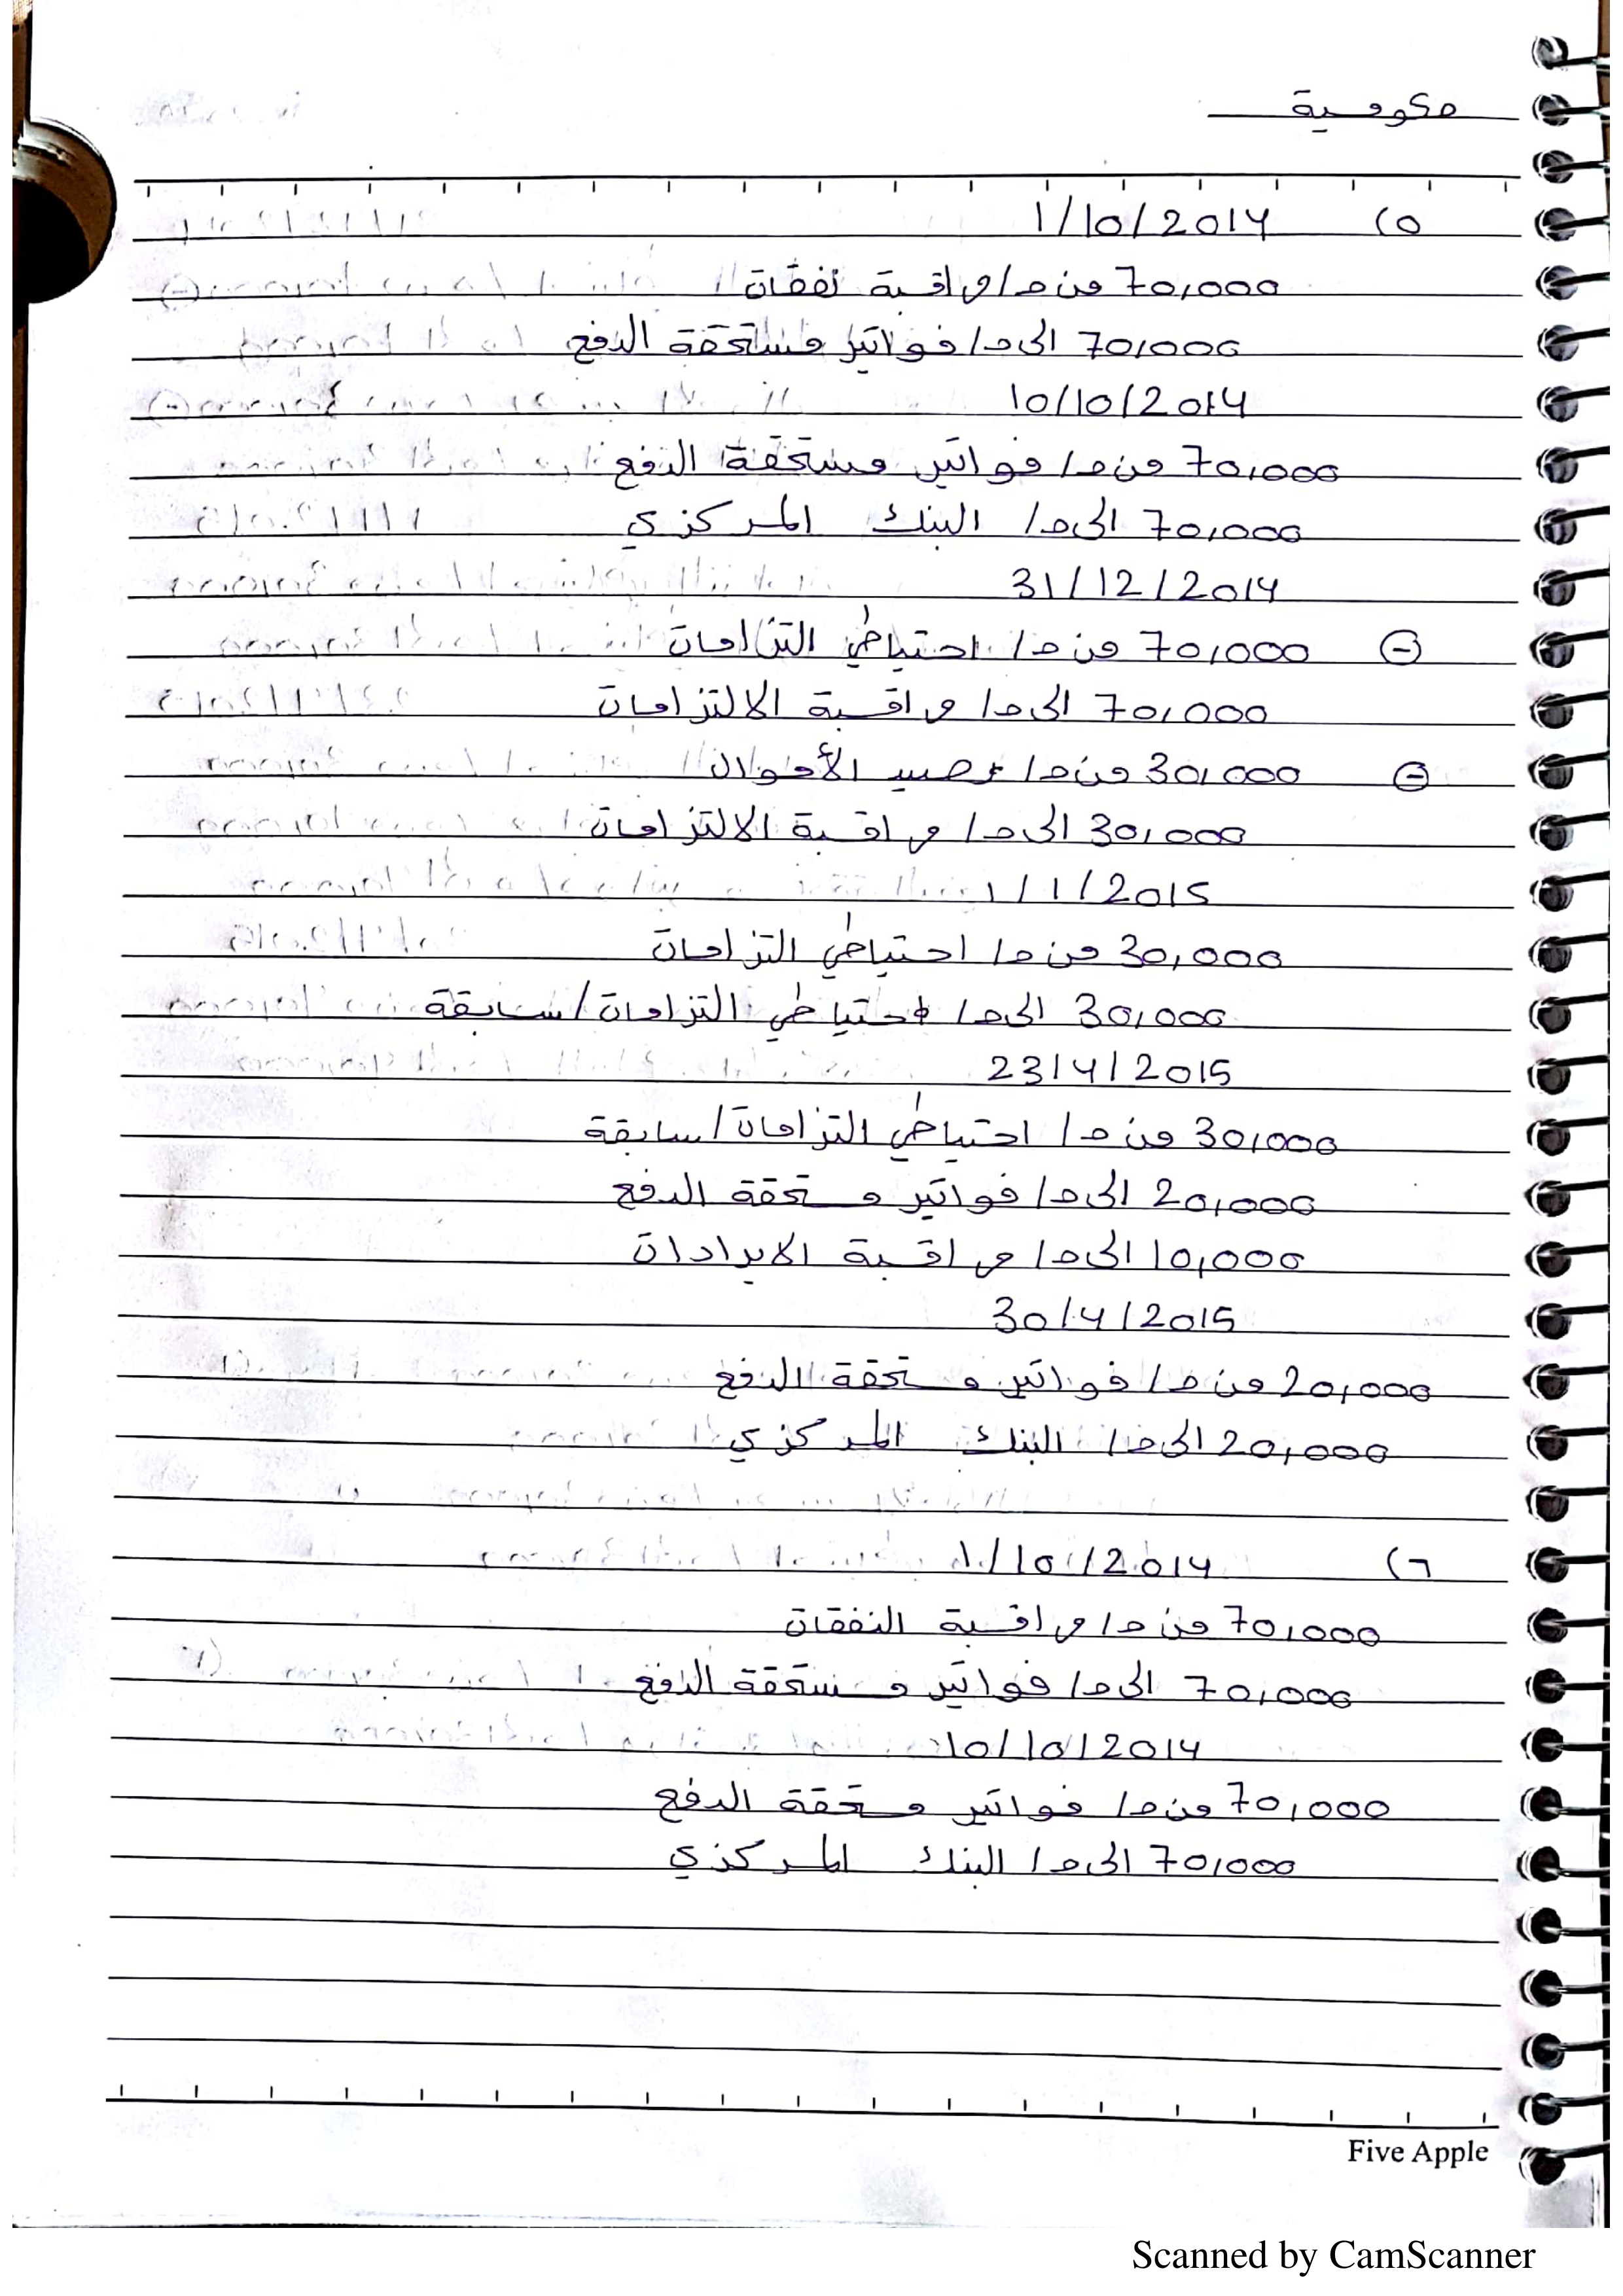 حكومية
٥) 1/10/2014
70,000 من ح/ مراقبة نفقات
70,000 الى ح/ فواتير مستحقة الدفع
10/10/2014
70,000 من ح/ فواتير مستحقة الدفع
70,000 الى ح/ البنك المركزي
31/12/2014
⊖ 70,000 من ح/ احتياطي التزامات
70,000 الى ح/ مراقبة الالتزامات
⊖ 30,000 من ح/ رصيد الأموال
30,000 الى ح/ مراقبة الالتزامات
1/1/2015
30,000 من ح/ احتياطي التزامات
30,000 الى ح/ احتياطي التزامات/سابقة
23/4/2015
30,000 من ح/ احتياطي التزامات/سابقة
20,000 الى ح/ فواتير مستحقة الدفع
10,000 الى ح/ مراقبة الايرادات
30/4/2015
20,000 من ح/ فواتير مستحقة الدفع
20,000 الى ح/ البنك المركزي
٦) 1/10/2014
70,000 من ح/ مراقبة النفقات
70,000 الى ح/ فواتير مستحقة الدفع
10/10/2014
70,000 من ح/ فواتير مستحقة الدفع
70,000 الى ح/ البنك المركزي
Five Apple
Scanned by CamScanner